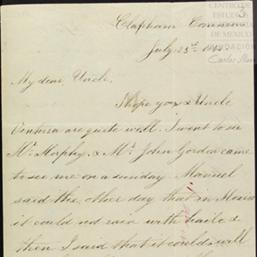 CENTRO DE
ESTUDIOS
DE MEXICO
FUNDACIÓN
Carlos Slim
Clapham Common
July 23rd
My dear Uncle,
I hope you & Uncle
Ventura are quite well. I went to see
Mr Morphy, & Mr John Gordon came
to see me on a sunday. Manuel
said the other day that in Mexico
it could not rain with hails &
then I said that it could & will